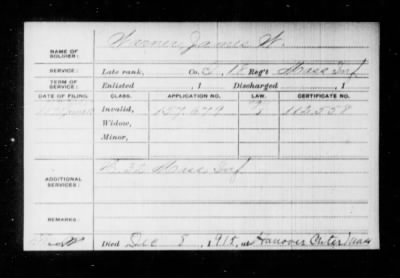 NAME OF SOLDIER: Warner, James W.
SERVICE: Late rank, Co. 18 Reg't Mass Inf
TERM OF SERVICE: Enlisted , 1 Discharged , 1
DATE OF FILING. CLASS. APPLICATION NO. LAW. CERTIFICATE NO.
Invalid, 157,679 112.558
Widow,
Minor,
ADDITIONAL SERVICES: 32 Mass Inf
REMARKS:
Died Dec 8, 1915, at Hanover Center Mass